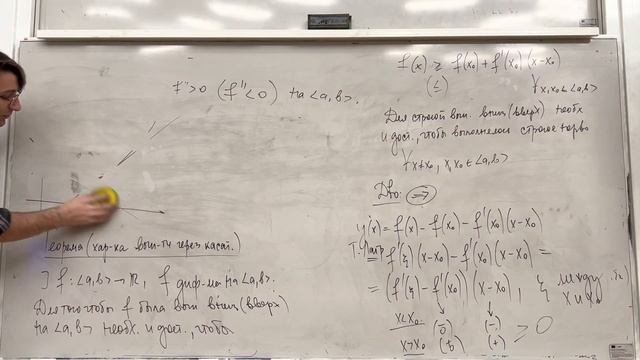 f''>0 (f''<0) на <a,b>.
Теорема (хар-ка вып-ти через касат.)
] f: <a,b> → ℝ, f диф-ма на <a,b>.
Для того чтобы f была вып вниз (вверх)
на <a,b> необх. и дост., чтобы
f(x) ≥ f(x₀) + f'(x₀)(x-x₀)
(≤) ∀ x, x₀ ∈ <a,b>
Для строгой вып. вниз (вверх) необх
и дост., чтобы выполнялось строгое нер-во
∀ x≠x₀, x, x₀ ∈ <a,b>
Д-во: ⇒
φ(x) = f(x) - f(x₀) - f'(x₀)(x-x₀)
Т. Лагр = f'(ξ)(x-x₀) - f'(x₀)(x-x₀) =
= (f'(ξ) - f'(x₀))(x-x₀), ξ между
x и x₀
x<x₀ (-) (-) ≥ 0
x>x₀ (+) (+)